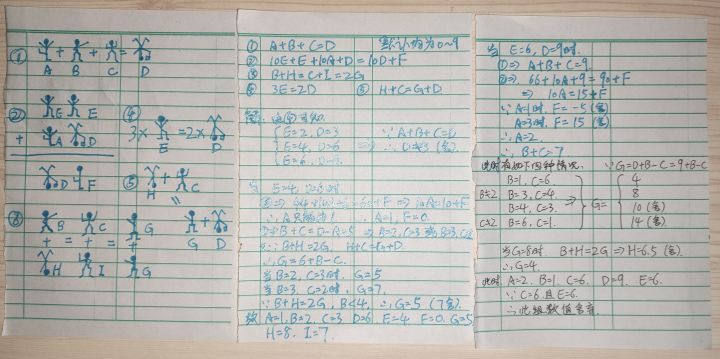 ①
+ + =
A B C D
②
E E
+ A D
D F
④ 3× E =2× D
⑤ + =
H C G D
③ B C G
+ = + = +
H I G
① A+B+C=D 默认均为0~9
② 10E+E+10A+D=10D+F
③ B+H=C+I=2G
④ 3E=2D ⑤ H+C=G+D
E=2, D=3
E=4, D=6
E=6, D=9
∵ A+B+C=D
∴ D≠3 (舍)
当 E=4, D=6时
∴ A=1, F=0.
B+C=D-A=5 ⇒ B=2,C=3 或 B=3,C=2
∵ B+H=2G, H+C=G+D
∴ G=6+B-C.
当 B=2, C=3时, G=5
当 B=3, C=2时, G=7.
∵ B+H=2G, B<4, ∴ G=5 (7舍)
故 A=1, B=2, C=3 D=6 E=4 F=0, G=5
H=8, I=7.
当 E=6, D=9时.
①⇒ A+B+C=9.
②⇒ 66+10A+9=90+F
⇒ 10A=15+F
∵ A=1时, F=-5 (舍)
A=3时, F=15 (舍)
∴ A=2.
∴ B+C=7
此时有如下四种情况. ∵ G=D+B-C=9+B-C
B=1, C=6 4
B≠2 B=3, C=4 ⇒ G= 8
B=4, C=3. 10 (舍)
C≠2 B=6, C=1 14 (舍)
当G=8时. B+H=2G ⇒ H=6.5 (舍)
∴ G=4.
此时 A=2. B=1. C=6. D=9. E=6.
∵ C=6 且 E=6.
∴ 此组数值舍弃.